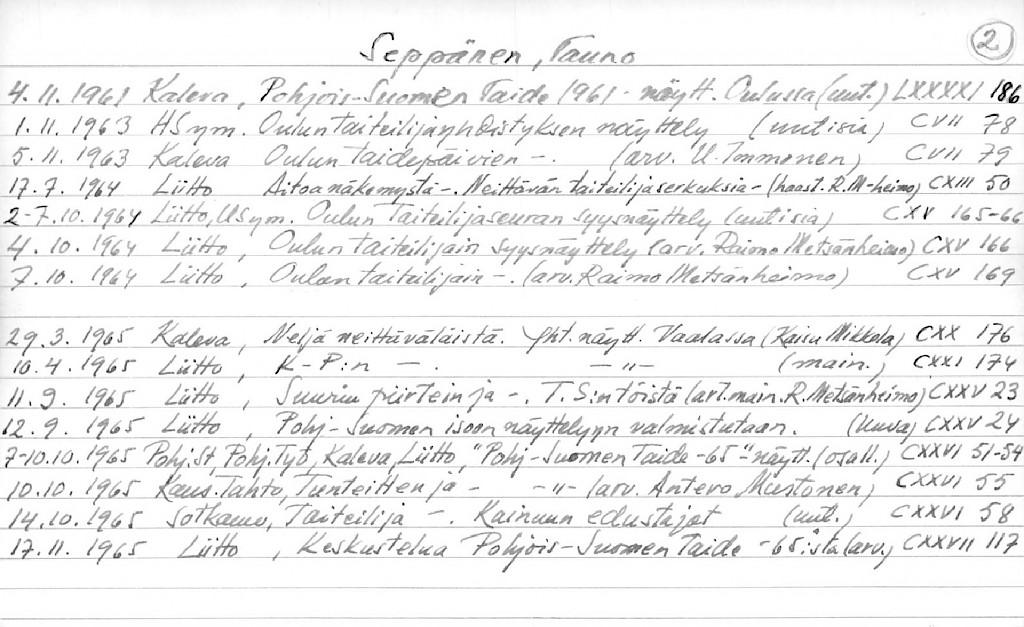 Seppänen, Tauno 2
4.11.1961 Kaleva, Pohjois-Suomen Taide 1961 - näytt. Oulussa (uut.) LXXXXI 186
1.11.1963 HSym. Ouluntaiteilijayhdistyksen näyttely (uutisia) CVII 78
5.11.1963 Kaleva Oulun taidepäivien -. (arv. U. Immonen) CVII 79
17.7.1964 Liitto Aitoa näkemystä -. Neittävän taiteilijaserkuksia - (haast. R. M-heimo) CXIII 50
2-7.10.1964 Liitto, USym. Oulun Taiteilijaseuran syysnäyttely (uutisia) CXV 165-66
4.10.1964 Liitto, Oulun taiteilijain syysnäyttely (arv. Raimo Metsänheimo) CXV 166
7.10.1964 Liitto, Oulun taiteilijain -. (arv. Raimo Metsänheimo) CXV 169
29.3.1965 Kaleva, Neljä neittäväläistä. Yht. näytt. Vaalassa (Kaisu Mikkola) CXX 176
10.4.1965 Liitto, K-P:n -. -"- (main.) CXXI 174
11.9.1965 Liitto, Suurin piirtein ja -. T.S:n töistä (art.main. R. Metsänheimo) CXXV 23
12.9.1965 Liitto, Pohj-Suomen isoon näyttelyyn valmistutaan. (kuva) CXXV 24
7-10.10.1965 Pohj.St, Pohj.Työ, Kaleva, Liitto, "Pohj-Suomen Taide -65"-näytt. (osall.) CXXVI 51-54
10.10.1965 Kans.Tahto, Tunteitten ja - -"- (arv. Antero Mustonen) CXXVI 55
14.10.1965 Sotkamo, Taiteilija -. Kainuun edustajat (uut.) CXXVI 58
17.11.1965 Liitto, Keskustelua Pohjois-Suomen Taide -65:stä (arv.) CXXVII 117